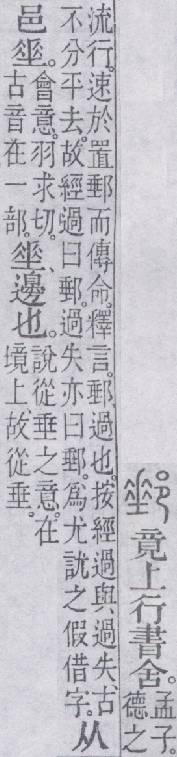 竟上行書舍。孟子。
德之
流行。速於置郵而傳命。釋言。郵、過也。按經過與過失、古
不分平去。故經過曰郵。過失亦曰郵。爲尤訧之假借字。从
邑𡍮。會意。羽求切。
古音在一部。𡍮、邊也。說從垂之意。在
境上、故從垂。